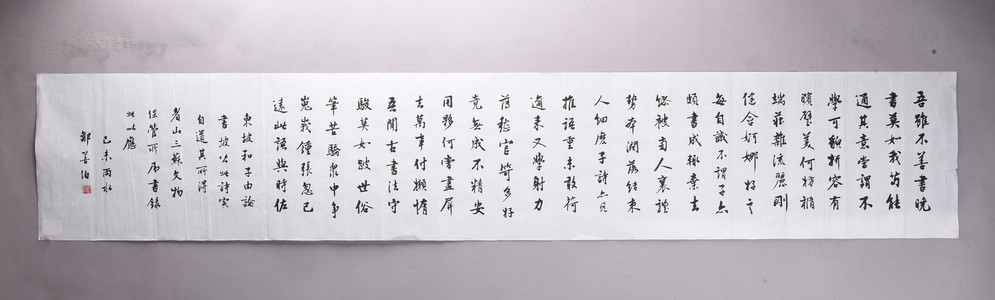 吾雖不善書曉
書莫如我苟能
通其意常謂不
學可貌妍容有
矉璧美何妨橢
端莊雜流麗剛
健含婀娜好之
每自譏不謂子亦
頗書成輒棄去
謬被旁人裹體
勢本闊落結束
入細麽子詩亦見
推語重未敢荷
邇來又學射力
薄愁官笴多好
竟無成不精安
用夥何當盡屏
去萬事付懶惰
吾聞古書法守
駿莫如跛世俗
筆苦驕衆中爭
嵬峩鍾張忽已
遠此語與時左
東坡和子由論
書坡公此詩實
自道其所得
眉山三蘇文物
保管所屬書錄
此以應
己未雨水